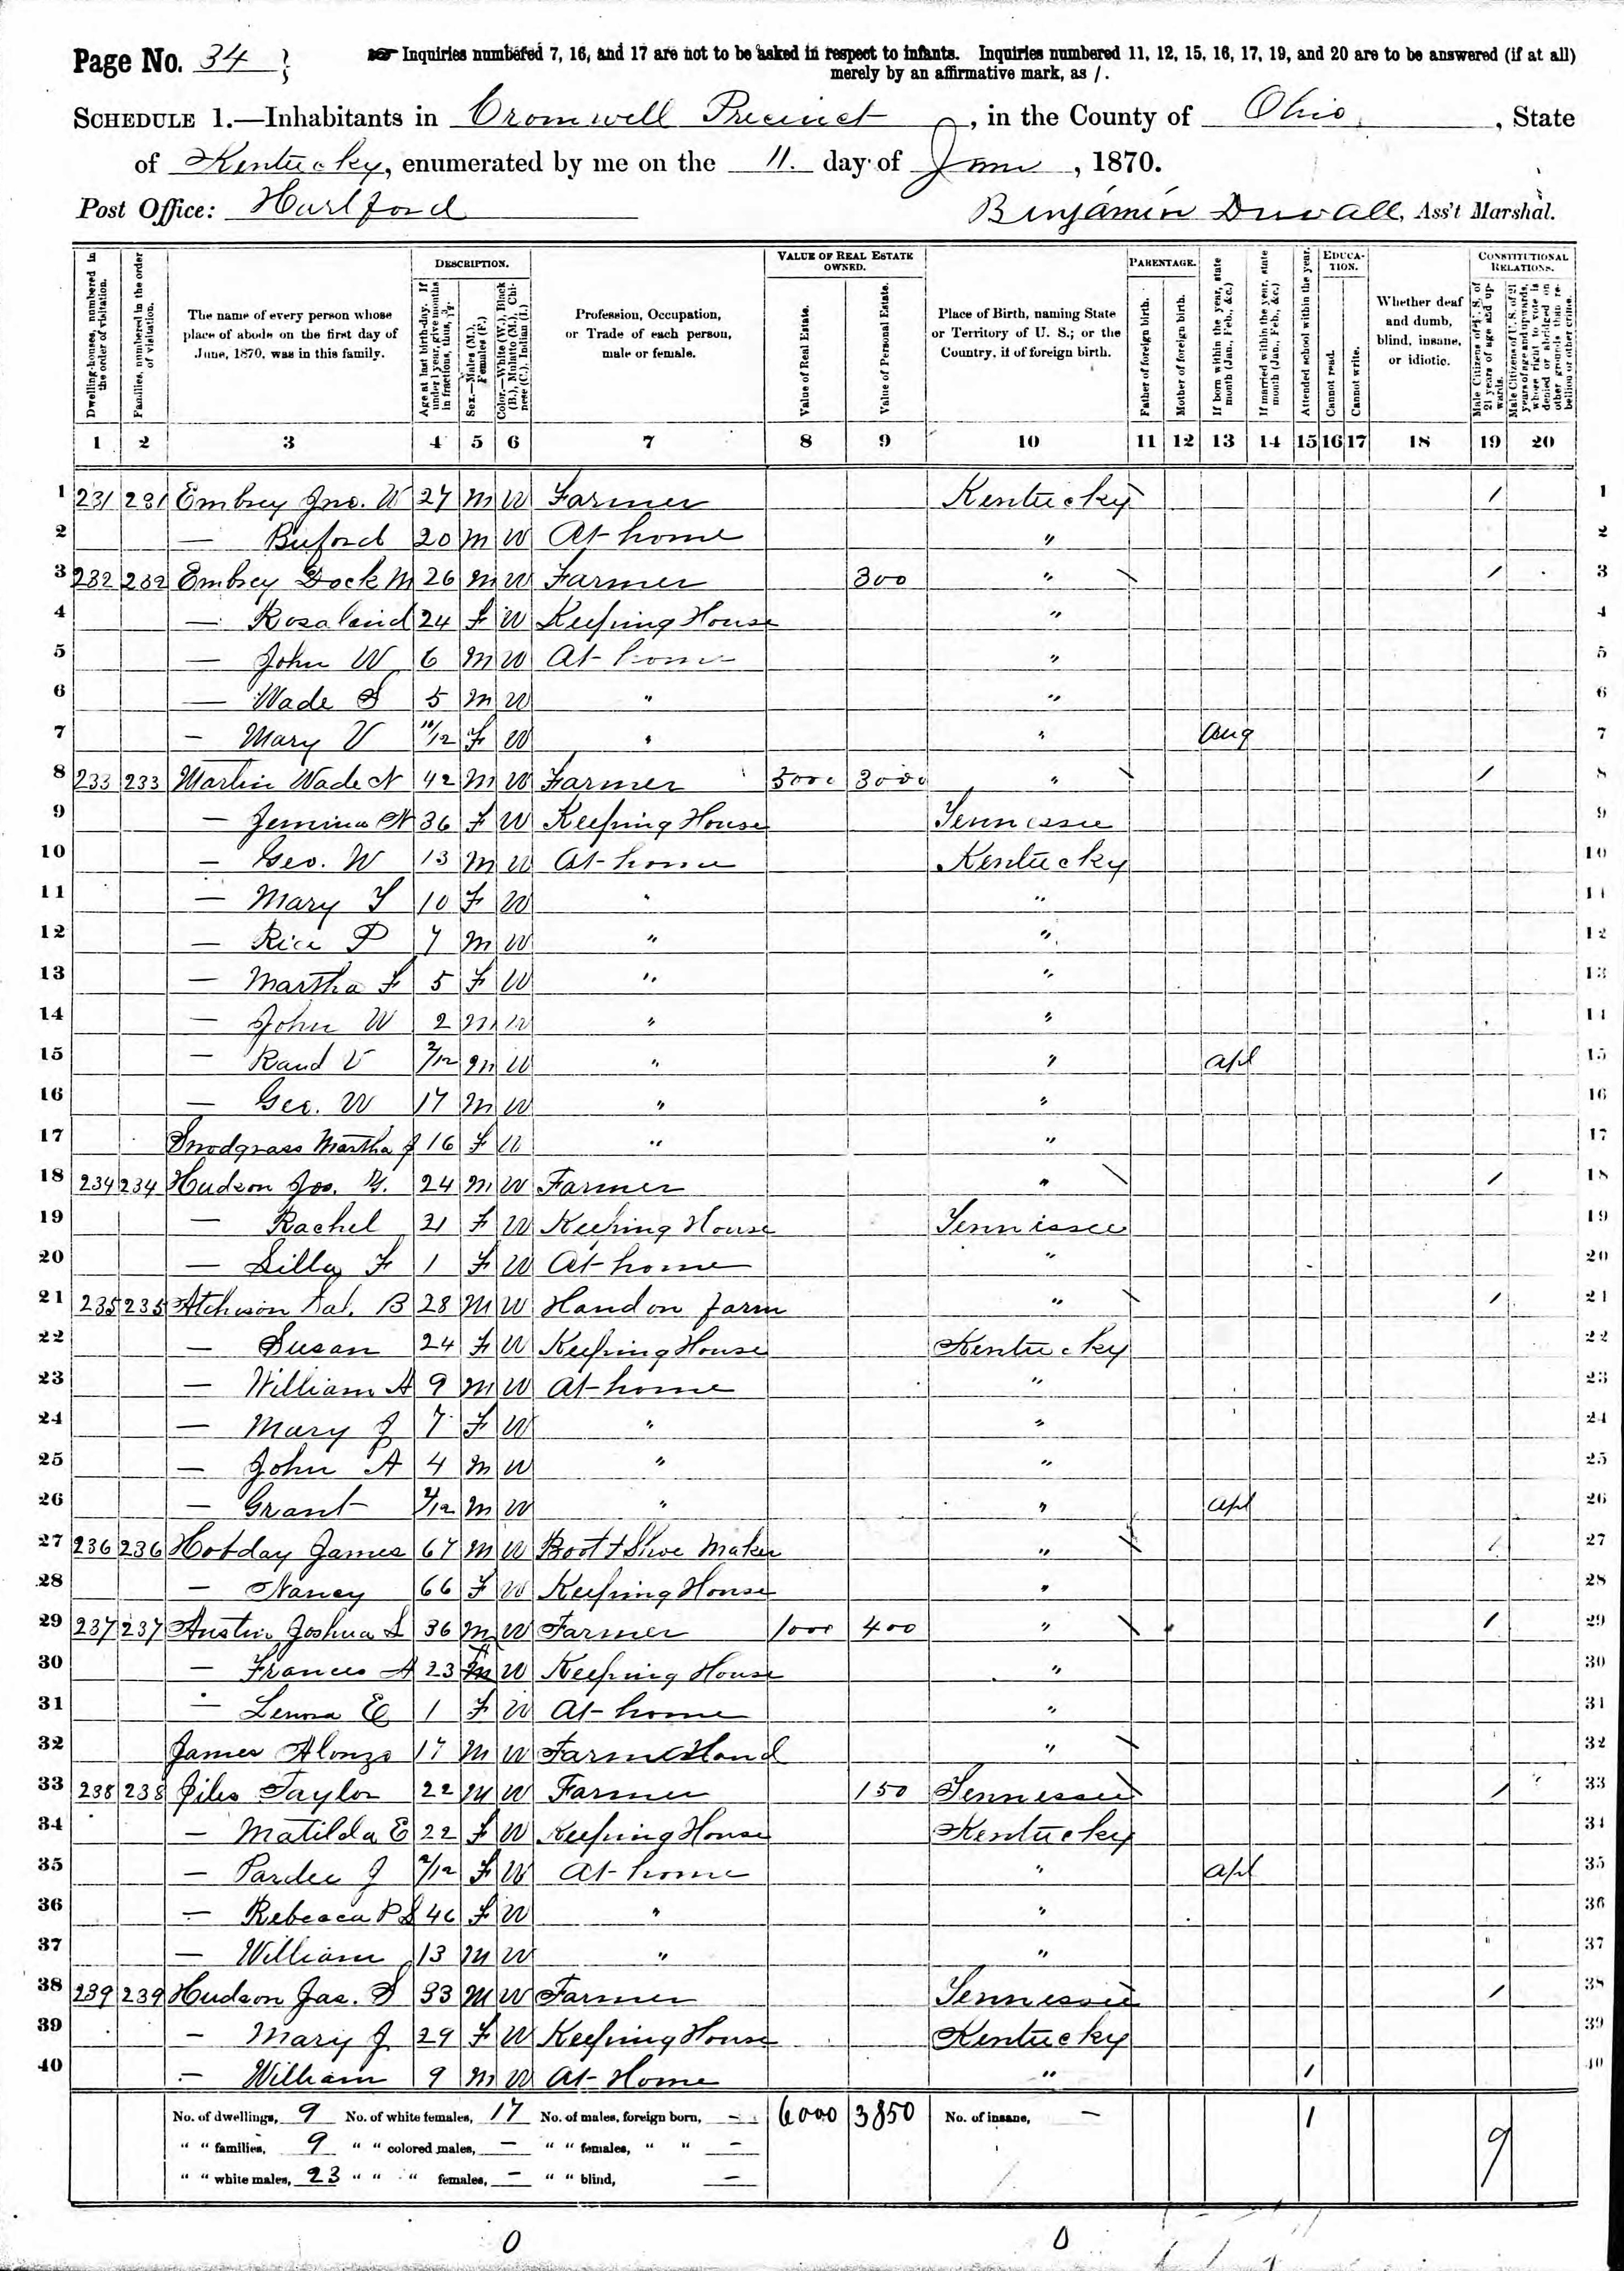 Page No. 34
Inquiries numbered 7, 16, and 17 are not to be asked in respect to infants. Inquiries numbered 11, 12, 15, 16, 17, 19, and 20 are to be answered (if at all)
merely by an affirmative mark, as /.
SCHEDULE 1.—Inhabitants in Cromwell Precinct, in the County of Ohio, State
of Kentucky, enumerated by me on the 11. day of June, 1870.
Post Office: Hartford Benjamin Duvall, Ass't Marshal.
Dwelling-houses, numbered in the order of visitation.
Families, numbered in the order of visitation.
The name of every person whose place of abode on the first day of June, 1870, was in this family.
DESCRIPTION.
Age at last birth-day. If under 1 year, give months in fractions, thus, 3/12.
Sex.—Males (M.), Females (F.)
Color.—White (W.), Black (B.), Mulatto (M.), Chinese (C.), Indian (I.)
Profession, Occupation, or Trade of each person, male or female.
VALUE OF REAL ESTATE OWNED.
Value of Real Estate.
Value of Personal Estate.
Place of Birth, naming State or Territory of U. S.; or the Country, if of foreign birth.
PARENTAGE.
Father of foreign birth.
Mother of foreign birth.
If born within the year, state month (Jan., Feb., &c.)
If married within the year, state month (Jan., Feb., &c.)
Attended school within the year.
EDUCATION.
Cannot read.
Cannot write.
Whether deaf and dumb, blind, insane, or idiotic.
CONSTITUTIONAL RELATIONS.
Male Citizens of U. S. of 21 years of age and upwards.
Male Citizens of U. S. of 21 years of age and upwards, whose right to vote is denied or abridged on other grounds than rebellion or other crime.
1 2 3 4 5 6 7 8 9 10 11 12 13 14 15 16 17 18 19 20
1 231 231 Embrey Jno. W 27 M W Farmer Kentucky / 1
2 — Buford 20 M W At home " 2
3 232 232 Embrey Dock M 26 M W Farmer 300 " / 3
4 — Rosalind 24 F W Keeping House " 4
5 — John W 6 M W At home " 5
6 — Wade S 5 M W " " 6
7 — Mary V 10/12 F W " " Aug 7
8 233 233 Martin Wade N 42 M W Farmer 5000 3000 " / 8
9 — Jemima N 36 F W Keeping House Tennessee 9
10 — Geo. W 13 M W At home Kentucky 10
11 — Mary 10 F W " " 11
12 — Rice P 7 M W " " 12
13 — Martha F 5 F W " " 13
14 — John W 2 M W " " 14
15 — Rand V 2/12 M W " " Apl 15
16 — Geo. W 17 M W " " 16
17 Snodgrass Martha J 16 F W " " 17
18 234 234 Hudson Jos. 24 M W Farmer " / 18
19 — Rachel 21 F W Keeping House Tennissee 19
20 — F 1 F W At home " 20
21 235 235 Atchison B 28 M W Hand on farm " / 21
22 — Susan 24 F W Keeping House Kentucky 22
23 — William A 9 M W At home " 23
24 — Mary J 7 F W " " 24
25 — John A 4 M W " " 25
26 — Grant 2/12 M W " " Apl 26
27 236 236 Hotday James 67 M W Boot & Shoe Maker " / 27
28 — Nancy 66 F W Keeping House " 28
29 237 237 Austin Joshua S 36 M W Farmer 1000 400 " / 29
30 — Frances A 23 F W Keeping House " 30
31 — Lenora E 1 F W At home " 31
32 James Alonzo 17 M W Farm Hand " 32
33 238 238 Jiles Taylor 22 M W Farmer 150 Tennessee / 33
34 — Matilda E 22 F W Keeping House Kentucky 34
35 — Pardee J 2/12 F W At home " Apl 35
36 — Rebecca P S 46 F W " " 36
37 — William 13 M W " " 37
38 239 239 Hudson Jas. S 33 M W Farmer Tennessee / 38
39 — Mary J 29 F W Keeping House Kentucky 39
40 — William 9 M W At Home " / 40
No. of dwellings, 9 No. of white females, 17 No. of males, foreign born, — 6000 3850 No. of insane, — 1 9
" " families, 9 " " colored males, — " " females, " " —
" " white males, 23 " " " females, — " " blind, —
0 0